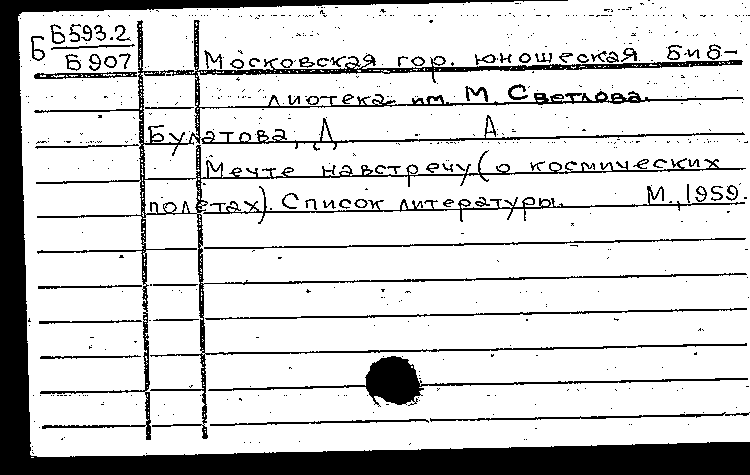 Б Б593.2
Б907
Московская гор. юношеская биб-
лиотека им. М. Светлова.
Булатова, Л А
Мечте навстречу (о космических
полетах). Список литературы. М., 1959.